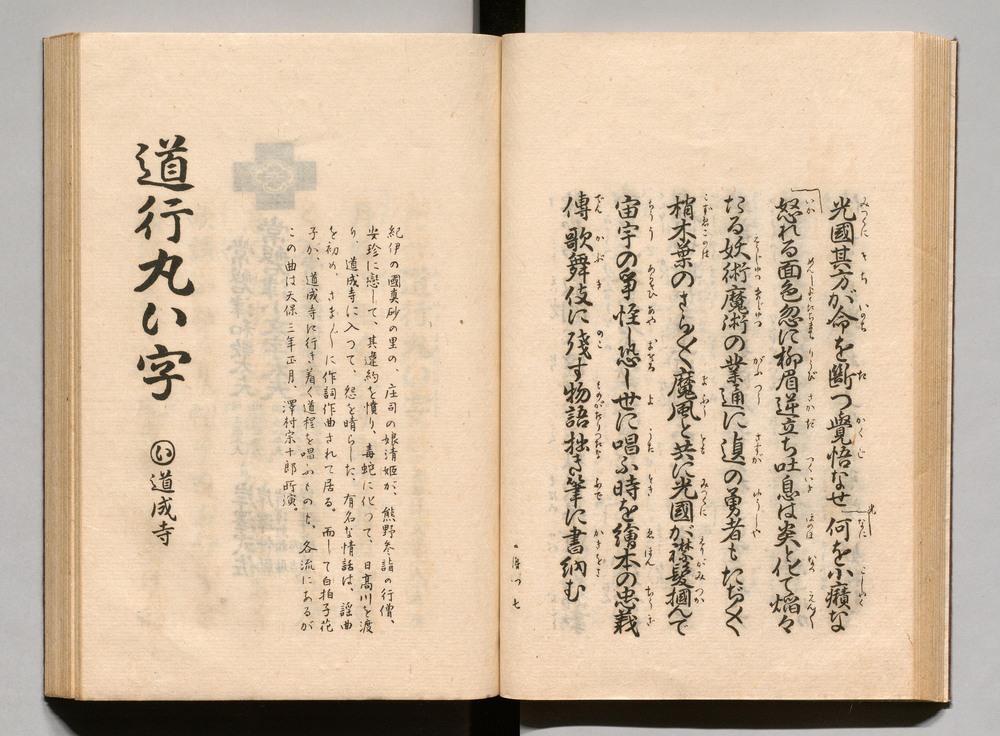 光國其方が命を斷つ覺悟なせ 何を小癪な
怒れる面色忽に柳眉逆立ち吐息は炎と化て焔々
たる妖術魔術の業通に遉の勇者もたぢ〱
梢木葉のさら〱魔風と共に光國が襟髮摑んで
宙宇の爭怪し恐し世に唱ふ時を繪本の忠義
傳歌舞伎に殘す物語拙き筆に書納む
七
道行丸い字
い 道成寺
紀伊の國真砂の里の、庄司の娘清姫が、熊野参詣の行僧、
安珍に戀して、其違約を憤り、毒蛇に化つて、日高川を渡
り、道成寺に入つて、怨を晴らした、有名な情話は、謡曲
を初め、さま〲に作詞作曲されて居る。而して白拍子花
子が、道成寺に行き着く道程を唱ふものも、各流にあるが
この曲は天保三年正月、澤村宗十郎所演。